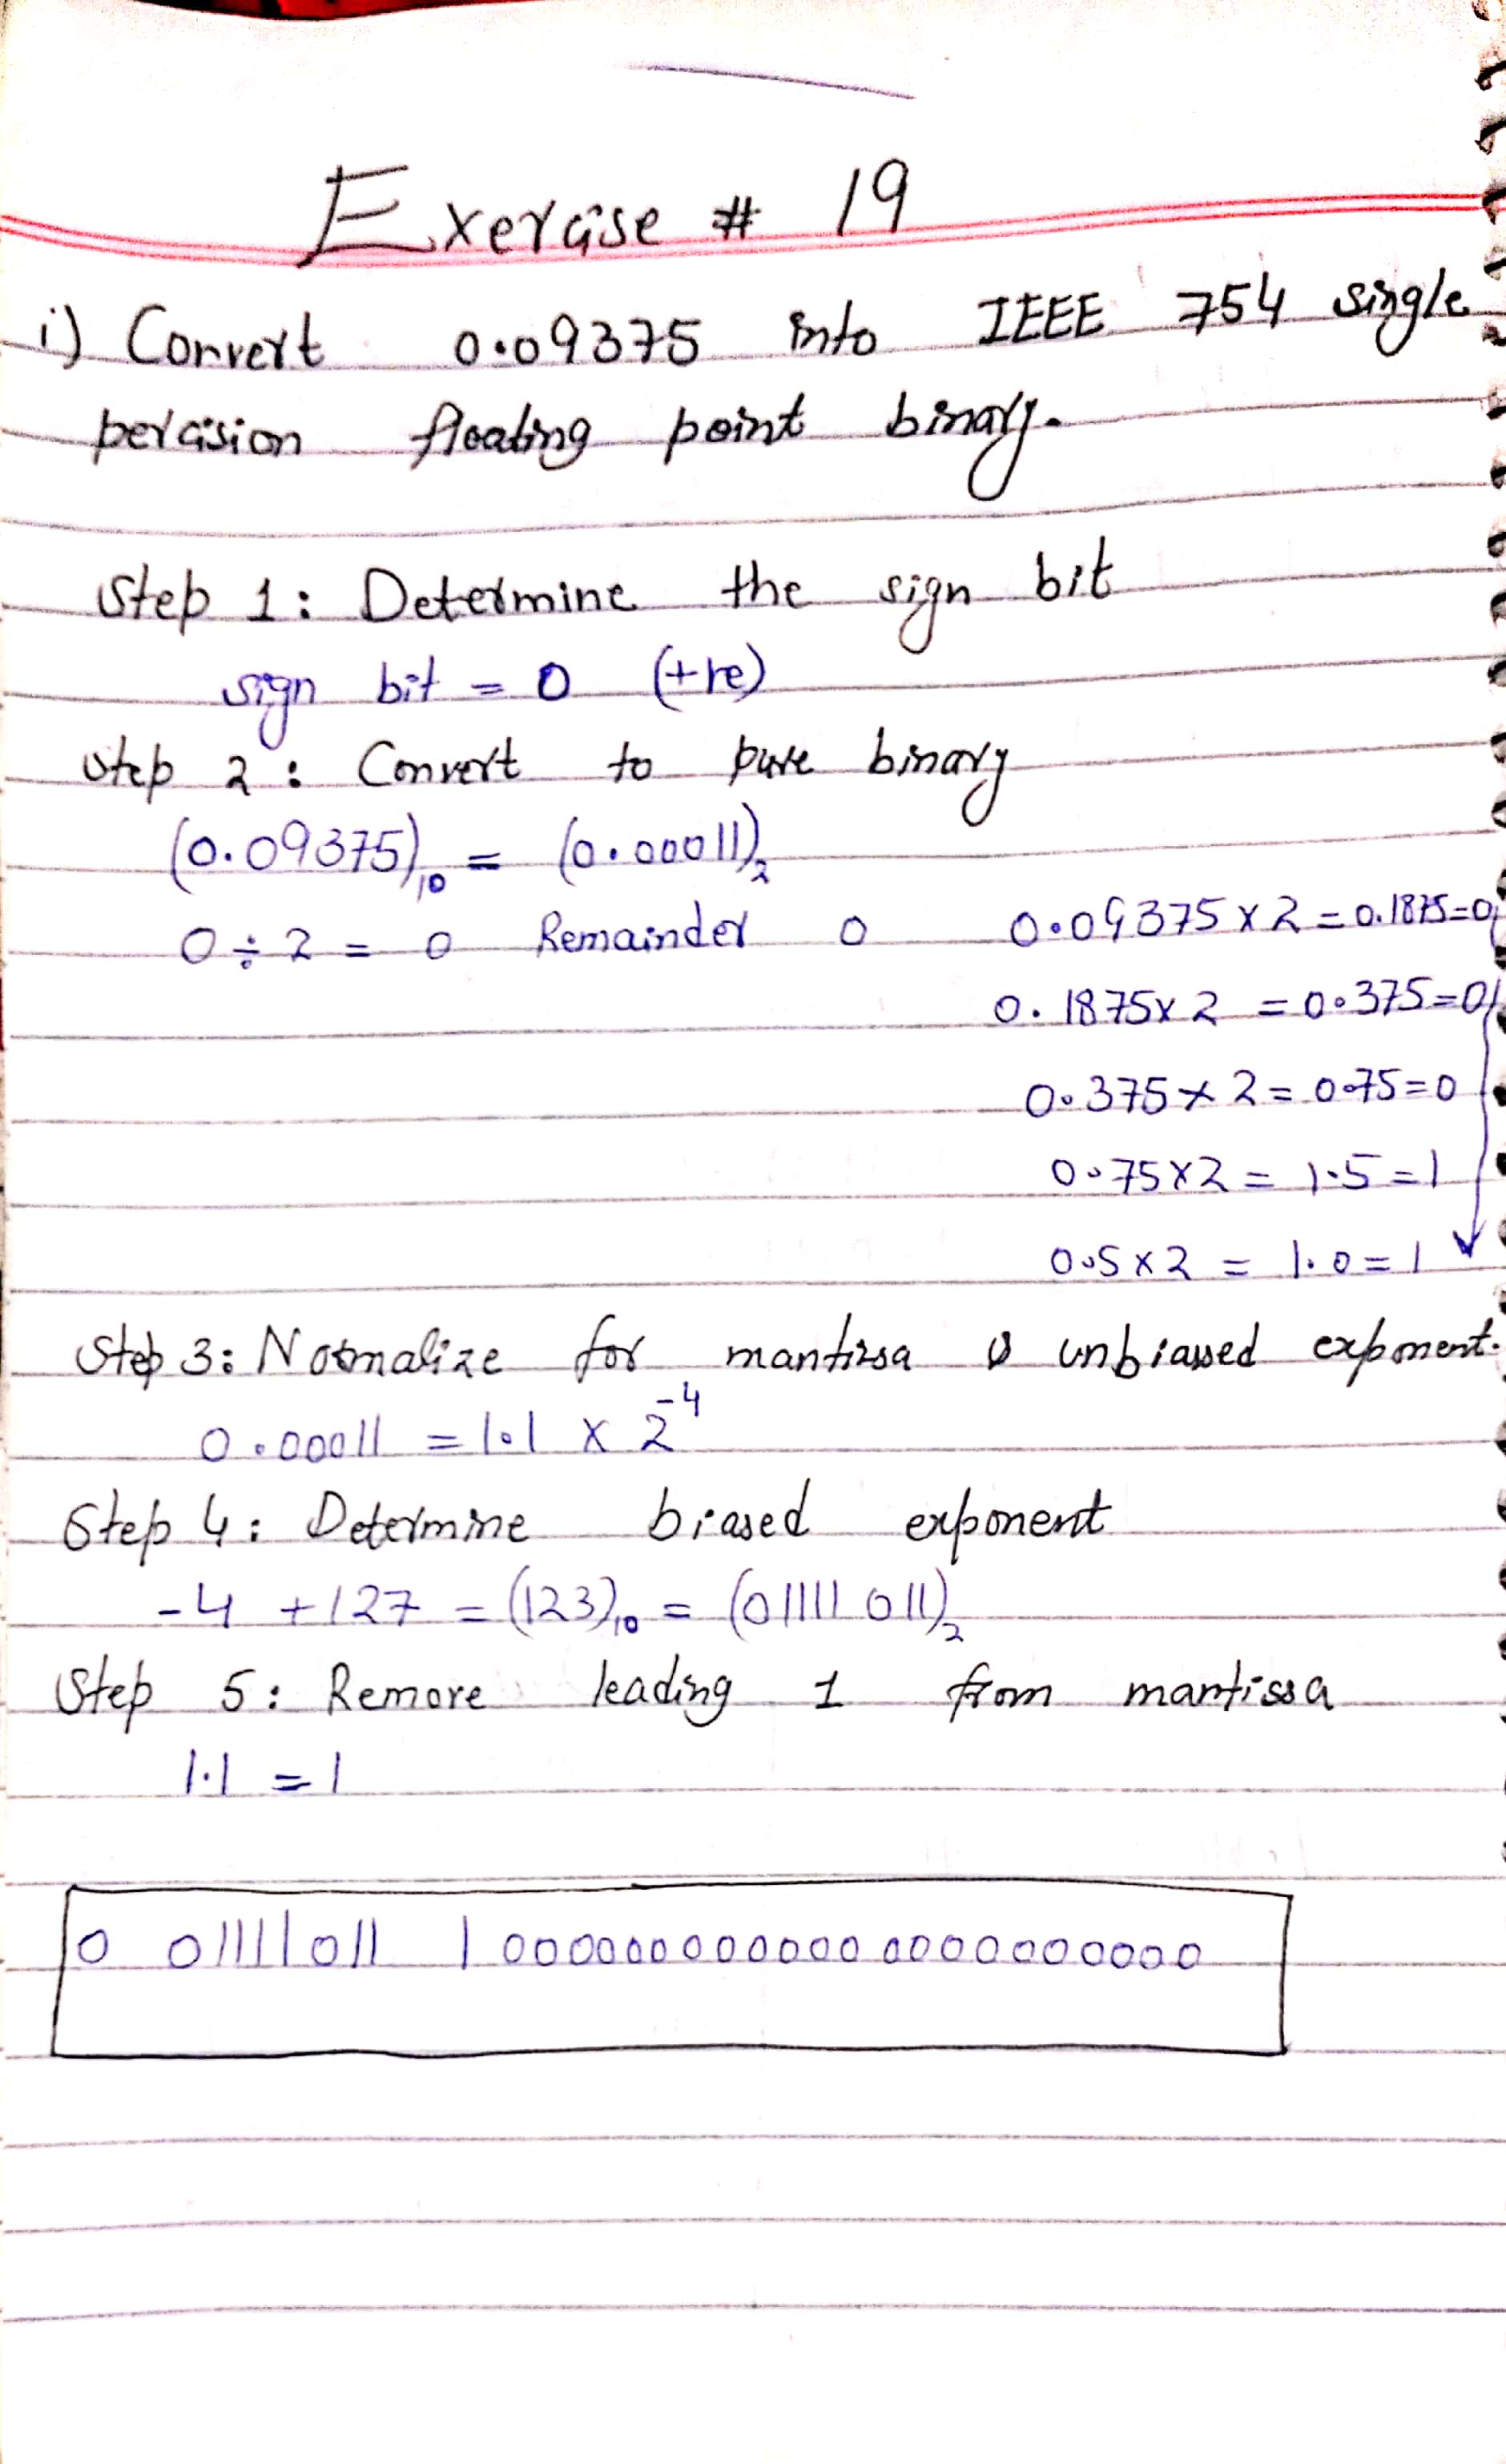 Exercise # 19
i) Convert 0.09375 into IEEE 754 single
percision floating point binary.
Step 1: Determine the sign bit
sign bit = 0 (+ve)
Step 2: Convert to pure binary
(0.09375)₁₀ = (0.00011)₂
0 ÷ 2 = 0 Remainder 0 0.09375 x 2 = 0.1875=0
0.1875x 2 = 0.375=0
0.375 x 2 = 0.75=0
0.75x2 = 1.5=1
0.5x2 = 1.0=1
Step 3: Normalize for mantissa & unbiassed exponent.
0.00011 = 1.1 x 2⁻⁴
Step 4: Determine biased exponent
-4 +127 = (123)₁₀ = (01111011)₂
Step 5: Remove leading 1 from mantissa
1.1 = 1
0 01111011 10000000000000000000000